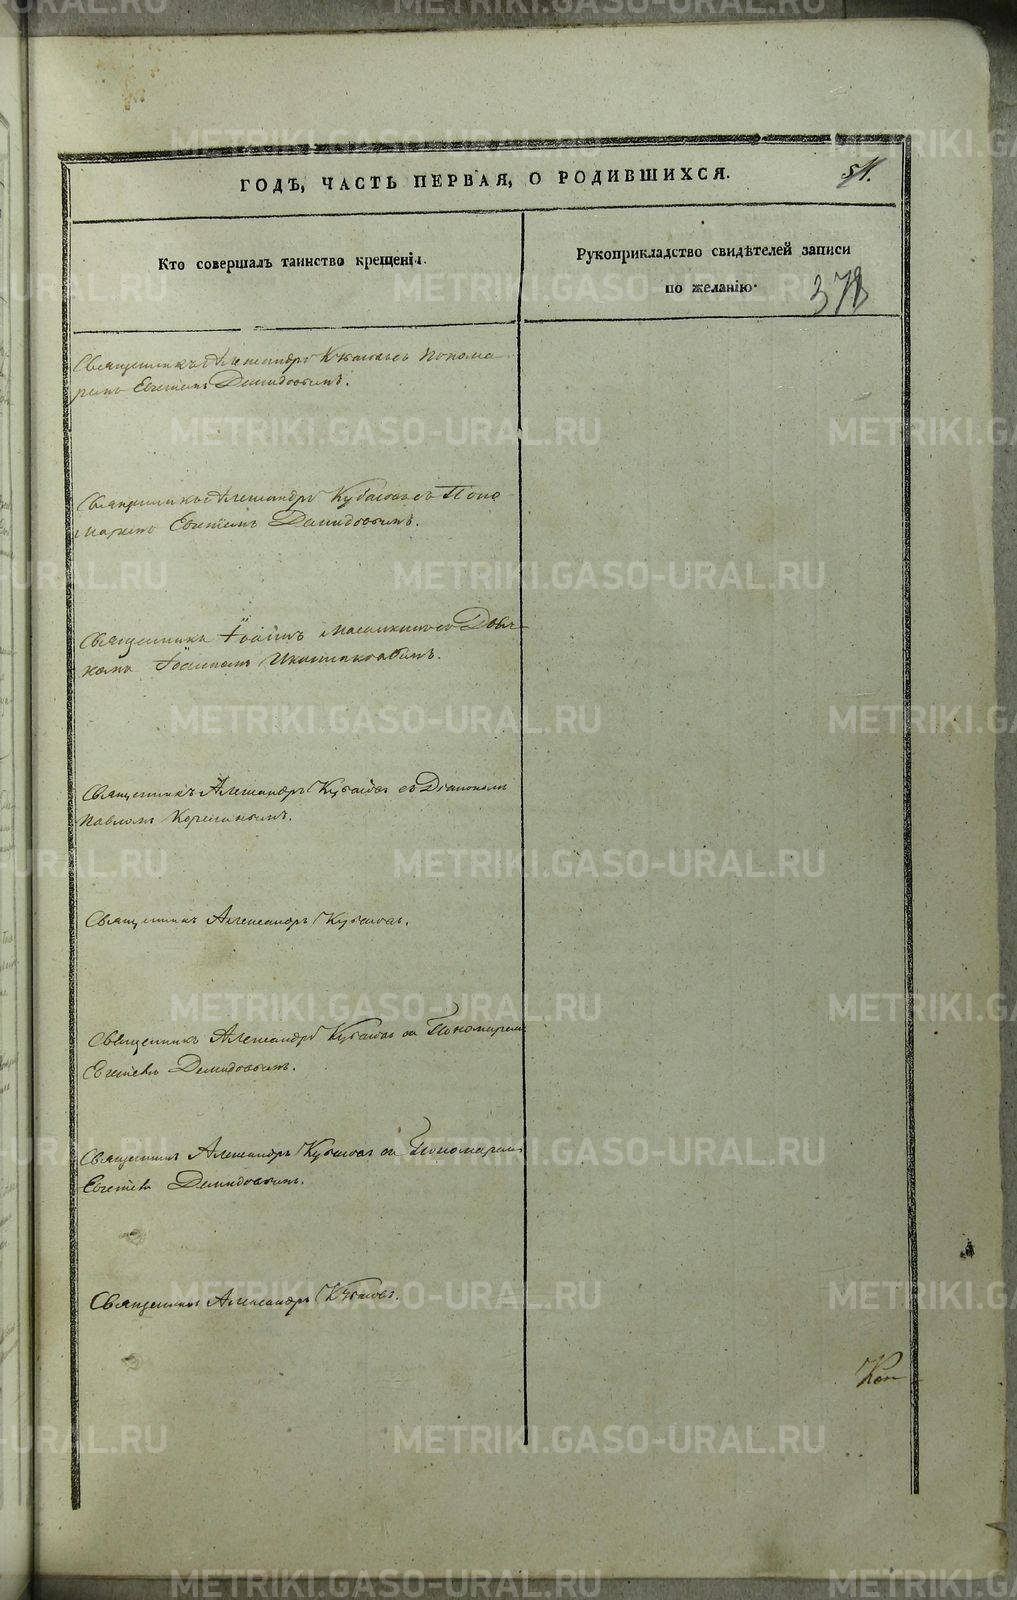 ГОДЪ, ЧАСТЬ ПЕРВАЯ, О РОДИВШИХСЯ.
51.
Кто совершалъ таинство крещенія.
Рукоприкладство свидѣтелей записи
по желанію.
378
Священникъ Александръ Кубасовъ съ Понома
ремъ Евгеніемъ Демидовымъ.
Священникъ Александръ Кубасовъ съ Поно
маремъ Евгеніемъ Демидовымъ.
Священникъ Іоаннъ съ Дьяч
комъ Іоанномъ
Священникъ Александръ Кубасовъ съ Діакономъ
Павломъ
Священникъ Александръ Кубасовъ.
Священникъ Александръ Кубасовъ съ Пономаремъ
Евгеніемъ Демидовымъ.
Священникъ Александръ Кубасовъ съ Пономаремъ
Евгеніемъ Демидовымъ.
Священникъ Александръ Кубасовъ.
METRIKI.GASO-URAL.RU